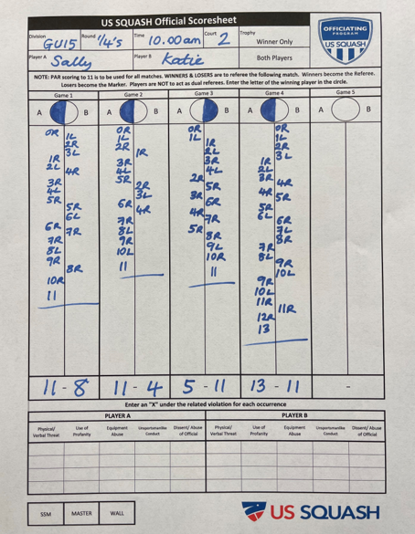 US SQUASH Official Scoresheet
Division GU15 Round 1/4's Time 10.00am Court 2 Trophy Winner Only
Player A Sally Player B Katie Both Players
OFFICIATING PROGRAM US SQUASH
NOTE: PAR scoring to 11 is to be used for all matches. WINNERS & LOSERS are to referee the following match. Winners become the Referee.
Losers become the Marker. Players are NOT to act as dual referees. Enter the letter of the winning player in the circle.
Game 1 Game 2 Game 3 Game 4 Game 5
A B A B A B A B A B
0R 0R 0R 0R
1L 1L 1L 1L
2R 2R 1R 2R
3L 1R 2L 3L
1R 3R 3R 1R
2L 4L 4L 2L
4R 5R 2R 3R 4R
3R 2R 5R 4R
4L 3L 3R 5R
5R 6R 4R 6R 5R
5R 7R 4R 7R 6L
6L 8L 5R 6R
6R 7R 9R 8R 7L
7R 10L 9L 8R
8L 11 10R 7R
9R 11 8L
8R 9R
10R 10L
11 9R
10L
11R 11R
12R
13
11 - 8 11 - 4 5 - 11 13 - 11 -
Enter an "X" under the related violation for each occurrence
PLAYER A PLAYER B
Physical/ Verbal Threat Use of Profanity Equipment Abuse Unsportsmanlike Conduct Dissent/ Abuse of Official Physical/ Verbal Threat Use of Profanity Equipment Abuse Unsportsmanlike Conduct Dissent/ Abuse of Official
SSM MASTER WALL
US SQUASH